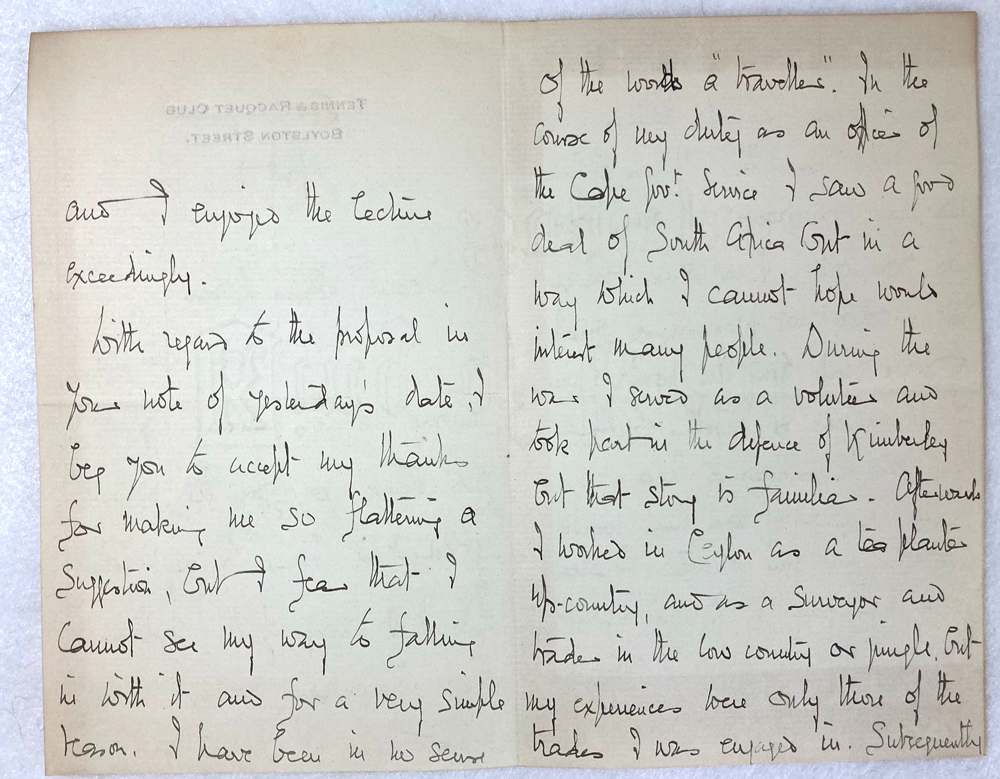 TENNIS & RACQUET CLUB
BOYLSTON STREET.
and I enjoyed the lecture
exceedingly.
With regard to the proposal in
your note of yesterday's date, I
beg you to accept my thanks
for making me so flattering a
suggestion, but I fear that I
cannot see my way to falling
in with it and for a very simple
reason. I have been in no sense
of the word a "traveller". In the
course of my duties as an officer of
the Cape Govt. Service I saw a good
deal of South Africa but in a
way which I cannot hope would
interest many people. During the
war I served as a volunteer and
took part in the defence of Kimberley
but that story is familiar. Afterwards
I worked in Ceylon as a tea planter
up-country, and as a surveyor and
trader in the low country or jungle, but
my experiences were only those of the
trades I was engaged in. Subsequently